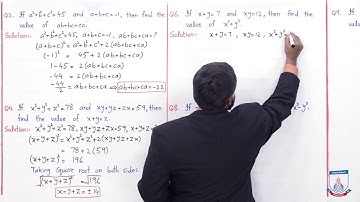 Q3. If a²+b²+c²=45 and a+b+c=-1, then find the
value of ab+bc+ca.
Solution:- a²+b²+c²=45, a+b+c=-1, ab+bc+ca=?
(a+b+c)² = a²+b²+c²+2(ab+bc+ca)
(-1)² = 45+2(ab+bc+ca)
1-45 = 2(ab+bc+ca)
-44 = 2(ab+bc+ca)
-44/2 = ab+bc+ca ⇒ ab+bc+ca=-22
Q4. If x²+y²+z²=78 and xy+yz+zx=59, then
find the value of x+y+z.
Solution:- x²+y²+z²=78, xy+yz+zx=59, x+y+z=?
(x+y+z)² = x²+y²+z²+2(xy+yz+zx)
= 78+2(59)
(x+y+z)² = 196
Taking Square root on both sides:
√(x+y+z)² = √196
x+y+z=±14
Q6. If x+y=7 and xy=12, then find the
value of x³+y³.
Solution:- x+y=7, xy=12, x³+y³
Q8. If
Q9. If